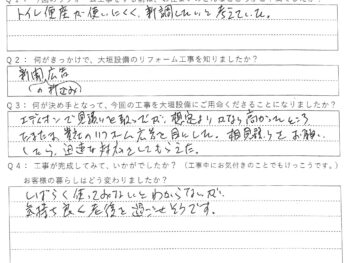 トイレ便座が使いにくく、新調したいと考えていた。
Q2：何がきっかけで、大垣設備のリフォーム工事を知りましたか？
新聞広告
(の折込み)
Q3：何が決め手となって、今回の工事を大垣設備にご用命くださることになりましたか？
エディオンで見積りを取ったが、想定よりかなり高かったところ
たまたま、貴社のリフォーム広告を目にした。相見積りをお願い
したら、迅速な対応をしてもらえた。
Q4：工事が完成してみて、いかがでしたか？（工事中にお気付きのことでもけっこうです。）
お客様の暮らしはどう変わりましたか？
しばらく使ってみないとわからないが、
気持ち良く老後を過ごせそうです。